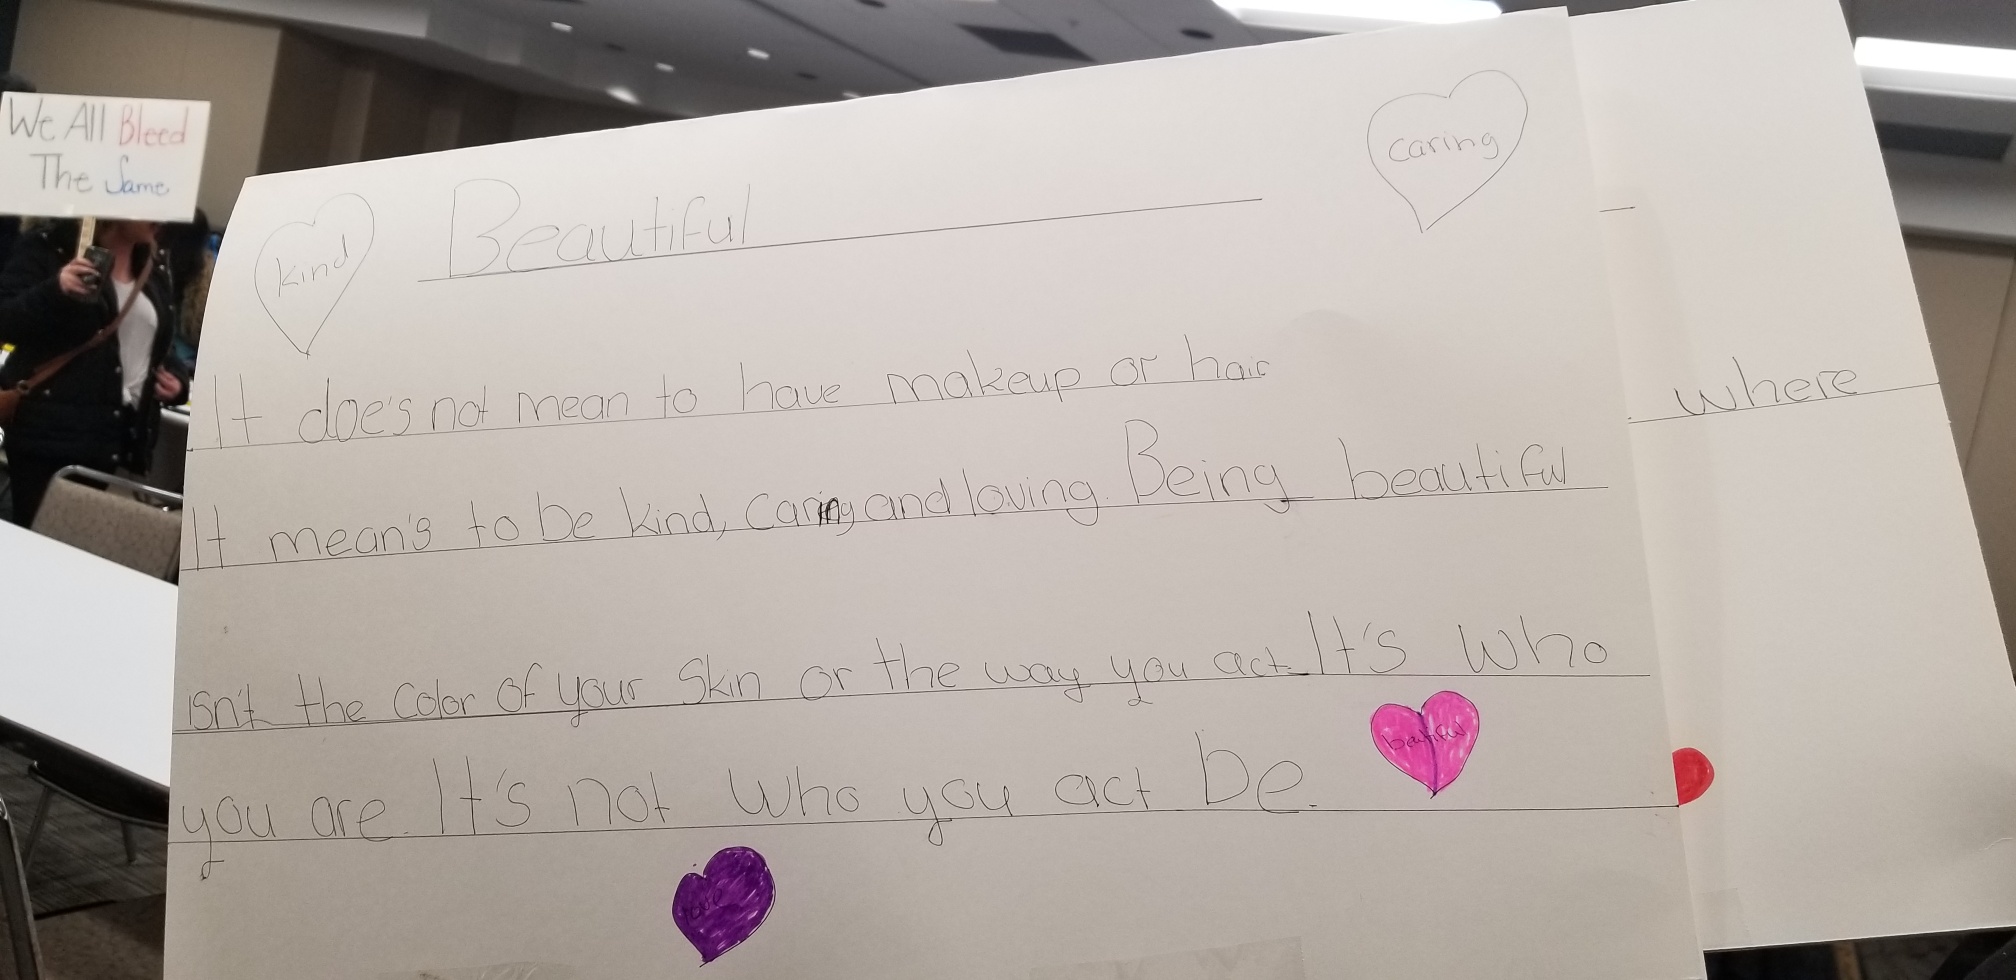 We All Bleed
The Same
kind
Beautiful
caring
It doe's not mean to have makeup or hair
It mean's to be kind, caring and loving. Being beautiful
isn't the color of your skin or the way you act. It's who
you are. It's not who you act be.
beautiful
love
where